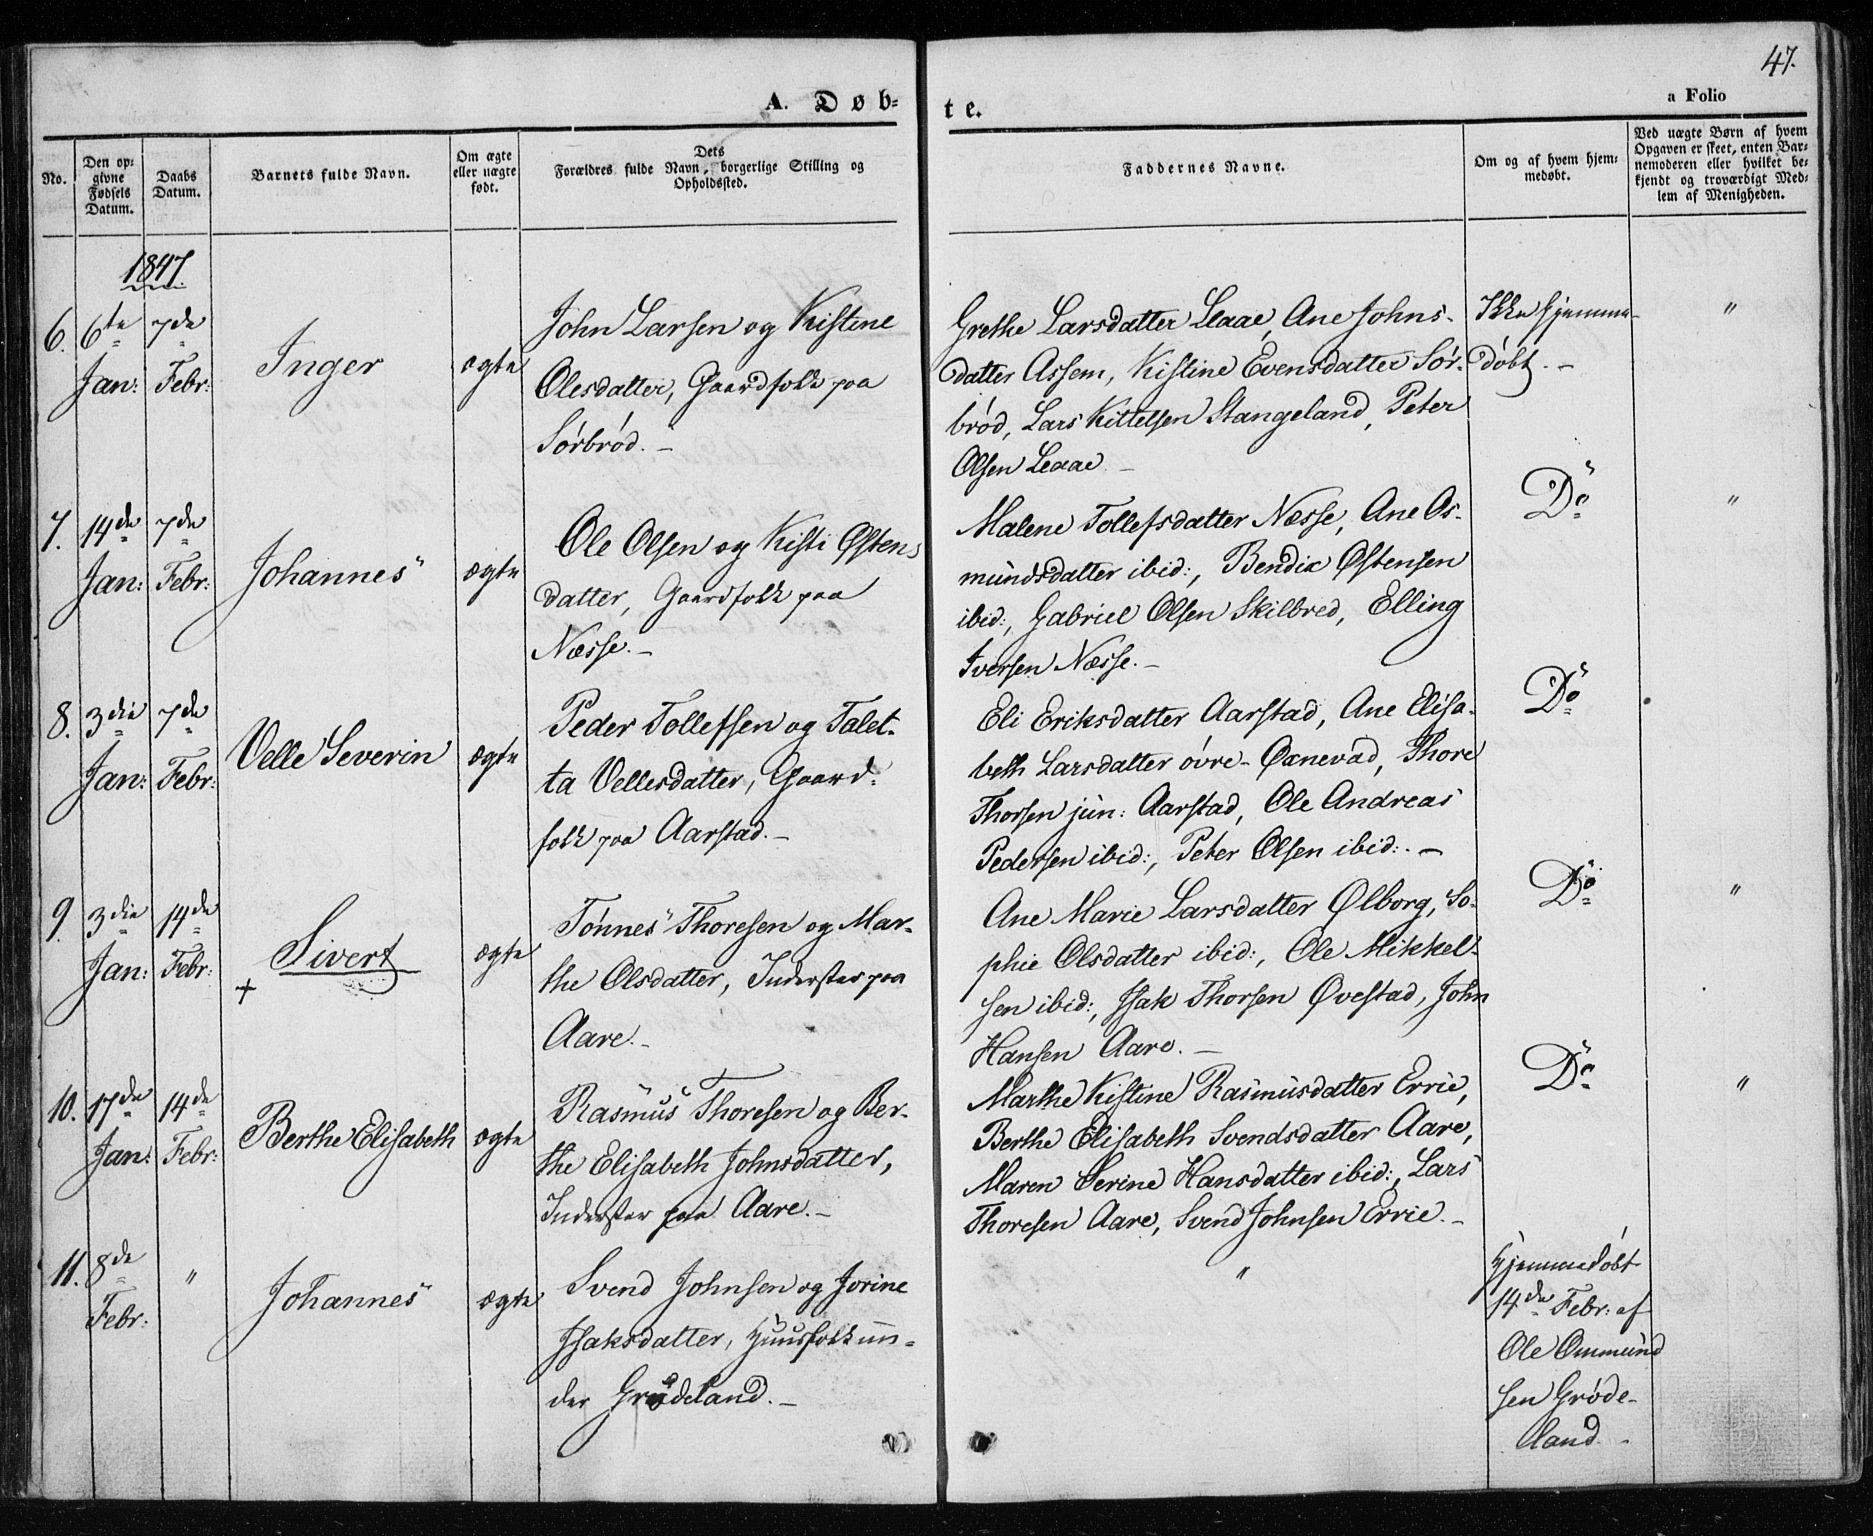 47.
A. Døb=
te.
a Folio
No.
Den op=
givne
Fødsels
Datum.
Daabs
Datum.
Barnets fulde Navn.
Om ægte
eller uægte
født.
Dets
Forældres fulde Navn, borgerlige Stilling og
Opholdssted.
Faddernes Navne.
Om og af hvem hjem=
medøbt.
Ved uægte Børn af hvem
Opgaven er skeet, enten Bar=
nemoderen eller hvilket be=
kjendt og troværdigt Med=
lem af Menigheden.
1847.
6.
6te
Jan:
7de
Febr:
Inger
ægte
John Larsen og Kistine
Olesdatter, Gaardfolk paa
Sørbrød. –
Grethe Larsdatter Leaae, Ane Johns-
datter Assem, Kistine Evensdatter Sør-
brød, Lars Kittelsen Stangeland, Peter
Olsen Leaae. –
Ikke hjemme-
døbt. –
"
7.
14de
Jan:
7de
Febr:
Johannes
ægte
Ole Olsen og Kisti Østens
datter, Gaardfolk paa
Næsse. –
Malene Tollefsdatter Næsse, Ane Os-
mundsdatter ibid:, Bendix Østensen
ibid:, Gabriel Olsen Skilbred, Elling
Iversen Næsse. –
Do
"
8.
3die
Jan:
7de
Febr:
Velle Severin
ægte
Peder Tollefsen og Talet-
ta Vellesdatter, Gaard-
folk paa Aarstad. –
Eli Eriksdatter Aarstad, Ane Elisa-
beth Larsdatter øvre- Øænevad, Thore
Thorsen jun: Aarstad, Ole Andreas
Pedersen ibid:, Peter Olsen ibid:. –
Do
9.
3die
Jan:
14de
Febr:
+ Sivert
ægte
Tønnes Thoresen og Mar-
the Olsdatter, Inderster paa
Aare. –
Ane Marie Larsdatter Ølborg, So-
phie Olsdatter ibid:, Ole Mikkel-
sen ibid:, Isak Thorsen Øvestad, John
Hansen Aare. –
Do
"
10.
17de
Jan:
14de
Febr:
Berthe Elisabeth
ægte
Rasmus Thoresen og Ber-
the Elisabeth Johnsdatter,
Inderster paa Aare. –
Marthe Kistine Rasmusdatter Errie,
Berthe Elisabeth Svendsdatter Aare,
Maren Serine Hansdatter ibid:, Lars
Thoresen Aare, Svend Johnsen Errie. –
Do
"
11.
8de
Febr:
"
Johannes
ægte
Svend Johnsen og Jorine
Isaksdatter, Huusfolk un-
der Grødeland. –
"
Hjemmedøbt
14de Febr: af
Ole Ommund
sen Grøde-
land. –